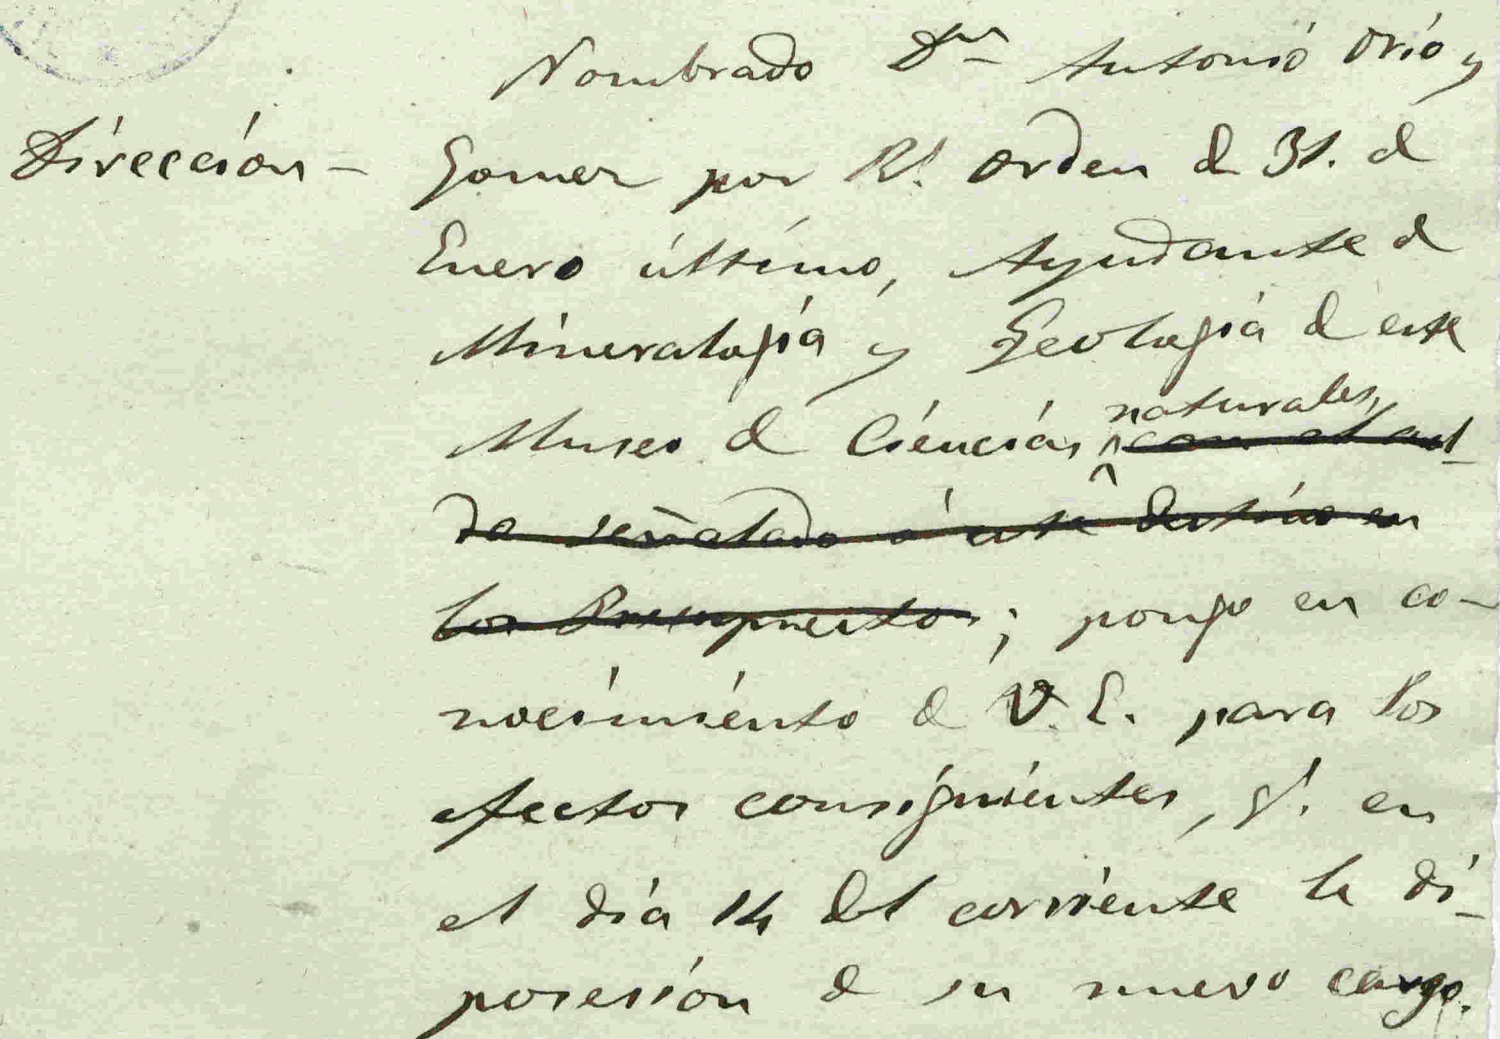 Nombrado Dn Antonio Orio y
Dirección - Gomez por Rl. orden de 31. de
Enero último, Ayudante de
Mineralogía y Geología de este
naturales,
Museo de Ciencias con el suel-
do señalado á este destino en
los Presupuestos; pongo en co-
nocimiento de V. E. para los
efectos consiguientes, q. en
el día 14 del corriente le dí
posesión de su nuevo cargo.